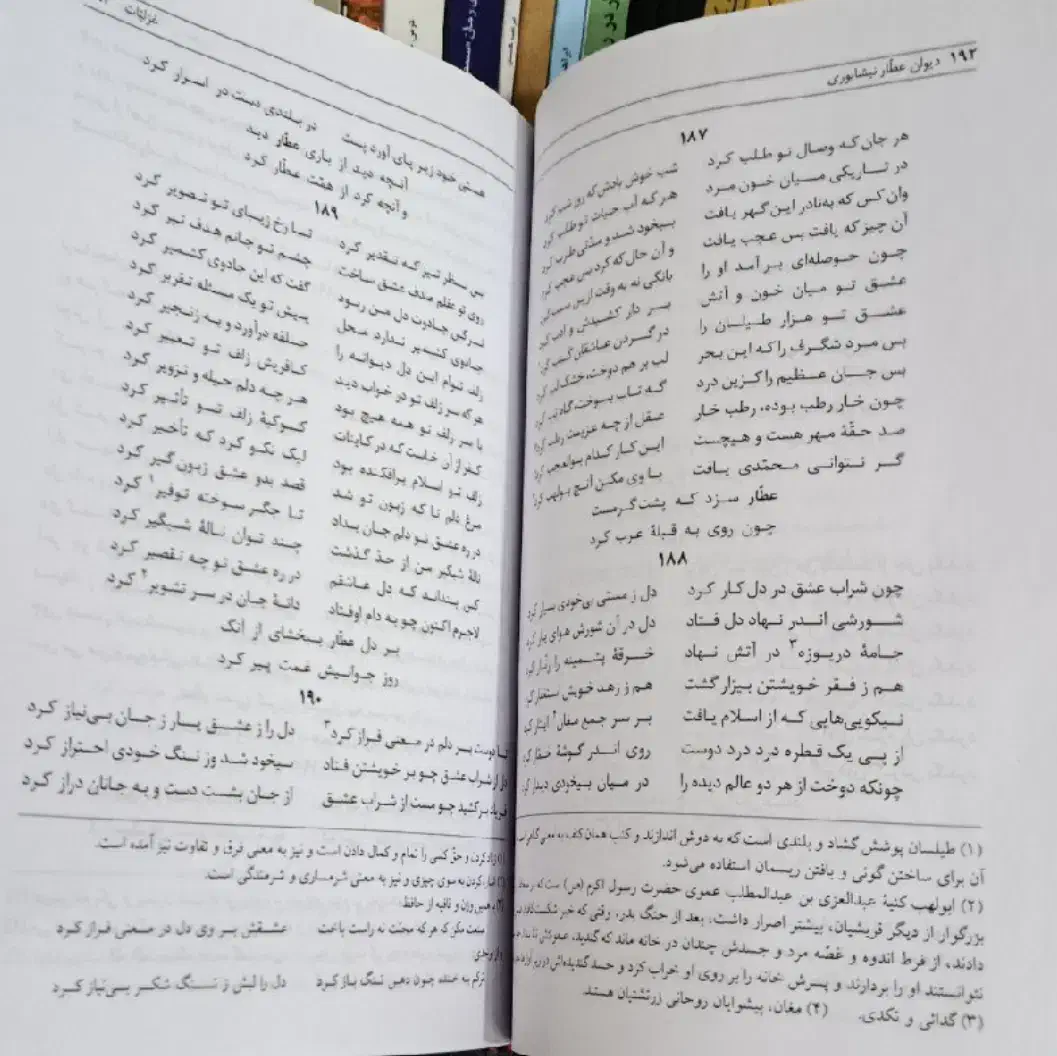 ۱۹۲ دیوان عطّار نیشابوری
۱۸۷
هر جان که وصال تو طلب کرد شب خوش بادش که روز شب کرد
در تاریکی میان خون مرد هر که آب حیات تو طلب کرد
وان کس که به‌نادر این گهر یافت بیخود شد و مدّتی طرب کرد
آن چیز که یافت بس عجب یافت و آن حال که کرد بس عجب کرد
چون حوصله‌ای بر آمد او را بانگی نه به وقت ازین سبب کرد
عشق تو میان خون و آتش بر دار کشیدش و ادب کرد
عشق تو هزار طیلسان را در گردن عاشقان کنب کرد
بس مرد شگرف را که این بحر لب بر هم دوخت، خشک‌لب کرد
بس جان عظیم را کزین درد گه تاب بسوخت، گاه تب کرد
چون خار رطب بوده، رطب خار عقل از چه عزیمت رطب کرد
صد حقّهٔ مهر هست و هیچست این کار کدام بوالعجب کرد
گر نتوانی محمّدی یافت باوی مکن آنچ بولهب کرد
عطّار سزد که پشت‌گرمست
چون روی به قبلهٔ عرب کرد
۱۸۸
چون شراب عشق در دل کار کرد دل ز مستی بی‌خودی بسیار کرد
شورشی اندر نهاد دل فتاد دل در آن شورش هوای یار کرد
جامهٔ دریوزه۳ در آتش نهاد خرقهٔ پشمینه را زنّار کرد
هم ز فقر خویشتن بیزار گشت هم ز زهد خویش استغفار کرد
نیکویی‌هایی که از اسلام یافت بر سر جمع مغان۴ ایثار کرد
از پی یک قطره درد درد دوست روی اندر گوشهٔ خمّار کرد
چونکه دوخت از هر دو عالم دیده را در میان بیخودی دیدار کرد
(۱) طیلسان پوشش گشاد و بلندی است که به دوش اندازند و کنب همان کنف به معنی گیاهی است که از
آن برای ساختن گونی و بافتن ریسمان استفاده می‌شود.
(۲) ابولهب کنیهٔ عبدالعزی بن عبدالمطلب عموی حضرت رسول اکرم (ص) است که
بزرگوار از دیگر قریشیان، بیشتر اصرار داشت، بعد از جنگ بدر، وقتی که خبر شکست
دادند، از فرط اندوه و غصّه مرد و جسدش چندان در خانه ماند که گندید،
نتوانستند او را بردارند و پسرش خانه را بر روی او خراب کرد و جسد گندیده‌اش در زیر آوار
(۳) گدائی و تکدی. (۴) مغان، پیشوایان روحانی زرتشتیان هستند.
غزلیّات
هستی خود زیر پای آورد پست در بلندی دست در اسرار کرد
آنچه دید از یاری عطّار دید
و آنچه کرد از همّت عطّار کرد
۱۸۹
بی سطر تیر که تقدیر کرد تا رخ زیبای تو تصویر کرد
روی تو عقلم صدف عشق ساخت چشم تو جانم هدف تیر کرد
نرگس جادوت دل من ربود گفت که این جادوی کشمیر کرد
جادوی کشمیر ندارد محل پیش تو یک مسئله تقریر کرد
زلف توام این دل دیوانه را حلقه درآورد و به زنجیر کرد
هر که سر زلف تو در خواب دید کافریش زلف تو تعبیر کرد
با سر زلف تو همه هیچ بود هر چه دلم حیله و تزویر کرد
کفر از آن خاست که در کاینات کوکبهٔ زلف تو تأثیر کرد
زلف تو اسلام برافکنده بود لیک نکو کرد که تأخیر کرد
مرغ دلم تا که زبون تو شد قصد بدو عشق زبون‌گیر کرد
در ره عشق تو دلم جان بداد تا جگر سوخته توفیر۱ کرد
نالهٔ شبگیر من از حد گذشت چند توان نالهٔ شبگیر کرد
کس بنداند که دل عاشقم در ره عشق تو چه تقصیر کرد
لاجرم اکنون چو به دام اوفتاد دانهٔ جان در سر تشویر۲ کرد
بر دل عطّار ببخشای از آنک
روز جوانیش غمت پیر کرد
۱۹۰
تا دوست بر دلم در معنی فراز کرد۳ دل را ز عشق یار ز جان بی‌نیاز کرد
دل از شراب عشق چو بر خویشتن فتاد بیخود شد وز ننگ خودی احتراز کرد
فریاد برکشید چو مست از شراب عشق از جان بشست دست و به جانان دراز کرد
(۱) زیاد کردن و حقّ کسی را تمام و کمال دادن است و نیز به معنی فرق و تفاوت نیز آمده است.
(۲) اشاره کردن به سوی چیزی و نیز به معنی شرمساری و شرمندگی است.
(۳) به همین وزن و قافیه از حافظ:
صنعت مکن که هر که محبّت نه راست باخت عشقش بر روی دل در معنی فراز کرد
و از وحدی:
ترکم به خنده چون دهن تنگ باز کرد دل را لبش ز تنگ شکر بی‌نیاز کرد